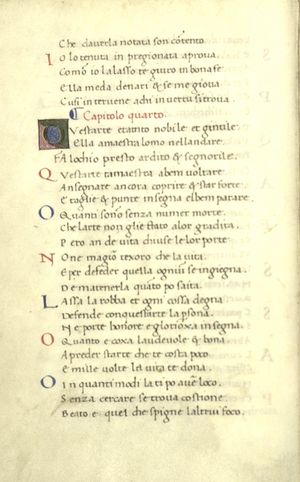 Che dauerla notata son cōtento.
Io lo tenuta in pregionata aprova.
Como io la lasso te giuro in bona fe
Ella me da denari & se me gioua
Cusi intruene a chi in uertu si troua.
Capitolo quarto.
Questarte e tanto nobile et gintile
Ella amaestra lomo nellandare.
Fa lochio presto ardito & segnorile.
Questarte ta maestra aben uoltare
Ansegnare ancora coprire & star forte
E taglie & punte insegna elben parare.
O quanti sono senza numer morte.
Che larte non gli e stato alor gradita.
Pero an de vita chiuse le lor porte
None magiō texoro che la uita.
E per defeder quella ognūi se ingiegna.
De mantenerla quāto po saita.
Lassa la robba et ogni cossa degna
Defende con questarte la psona.
Ne porte honore e glorioxa insegna.
O quanto e coxa laudeuole & bona
A preder starte che te costa poco
E mille uolte la uita te dona.
O in quanti modi la ti po auē loco.
Senza cercare se troua costione.
Beato e quel che spigne laltrui foco.